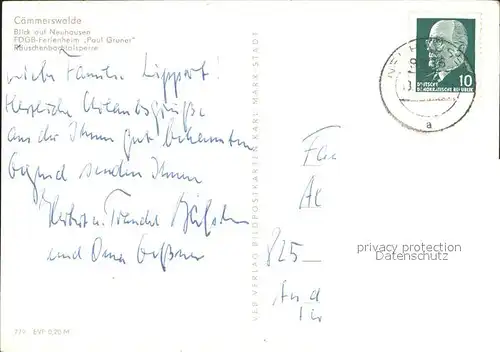 Cämmerswalde
Blick auf Neuhausen
FDGB-Ferienheim „Paul Gruner"
Rauschenbachtalsperre
Liebe Familie Lippert!
Herzliche Urlaubsgrüße
aus der Ihnen gut bekannten
Gegend senden Ihnen
Herbert u. Traudel
und Oma
VEB VERLAG BILDPOSTKARTEN KARL-MARX-STADT
DEUTSCHE
DEMOKRATISCHE REPUBLIK
10
a
Fa
825
privacy protection
Datenschutz
779 EVP 0,20 M